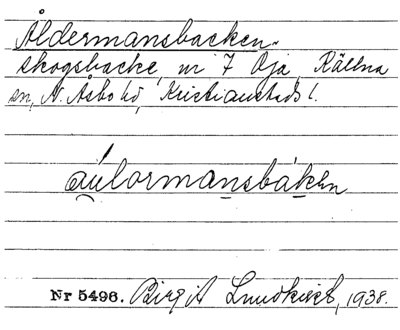 Åldermansbacken.
skogsbacke, nr 7 Öja, Källna
sn, N. Åsbo hd, Kristianstads l.
åu̯lormansbáken
Nr 5496. Birgit Lundkvist, 1938.